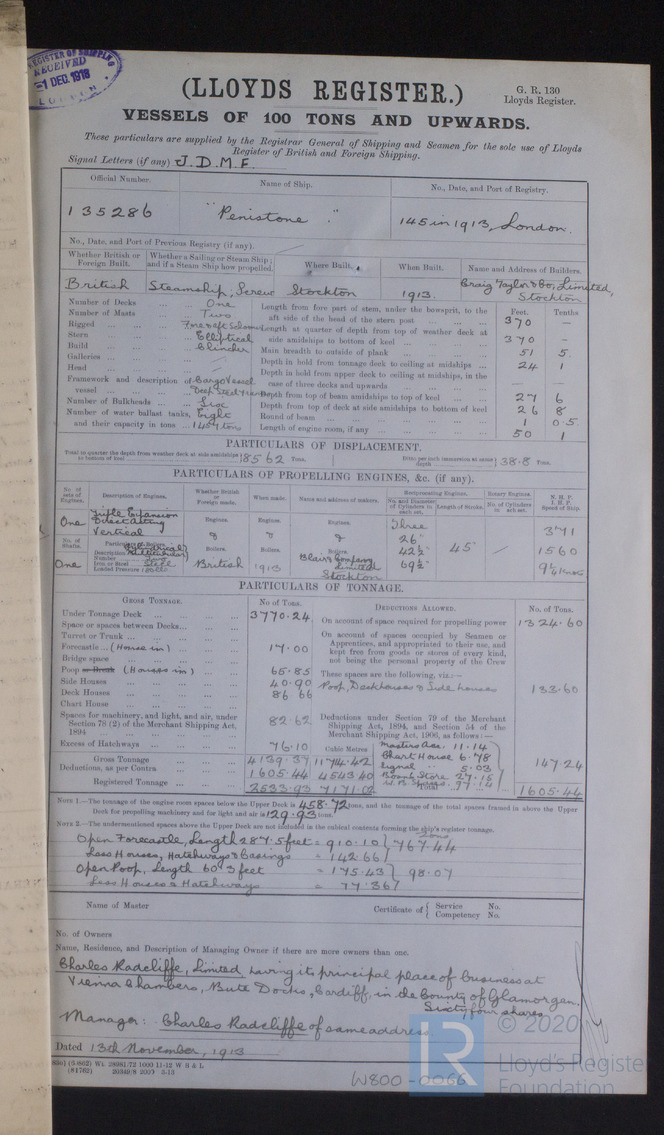 REGISTER OF SHIPPING
RECEIVED
-1 DEC. 1913
LONDON
(LLOYDS REGISTER.)
G. R. 130
Lloyds Register.
VESSELS OF 100 TONS AND UPWARDS.
These particulars are supplied by the Registrar General of Shipping and Seamen for the sole use of Lloyds
Register of British and Foreign Shipping.
Signal Letters (if any) J. D. M. F.
Official Number. Name of Ship. No., Date, and Port of Registry.
135286 "Penistone." 145 in 1913, London.
No., Date, and Port of Previous Registry (if any).
Whether British or Foreign Built. Whether a Sailing or Steam Ship; and if a Steam Ship how propelled. Where Built. When Built. Name and Address of Builders.
British Steamship, Screw Stockton 1913. Craig Taylor & Co., Limited, Stockton
Feet. Tenths
Number of Decks One
Number of Masts Two
Rigged Fore & aft Schooner
Stern Elliptical
Build Clincher
Galleries
Head
Framework and description of vessel Cargo Vessel
Number of Bulkheads Six
Number of water ballast tanks, Eight
and their capacity in tons 1457 tons
Length from fore part of stem, under the bowsprit, to the aft side of the head of the stern post 370 —
Length at quarter of depth from top of weather deck at side amidships to bottom of keel 370 —
Main breadth to outside of plank 51 5.
Depth in hold from tonnage deck to ceiling at midships 24 1
Depth in hold from upper deck to ceiling at midships, in the case of three decks and upwards
Depth from top of beam amidships to top of keel 27 6
Depth from top of deck at side amidships to bottom of keel 26 8
Round of beam 1 0.5
Length of engine room, if any 50 1
PARTICULARS OF DISPLACEMENT.
Total to quarter the depth from weather deck at side amidships to bottom of keel 8562 Tons. Ditto per inch immersion at same depth 38.8 Tons.
PARTICULARS OF PROPELLING ENGINES, &c. (if any).
No. of sets of Engines. Description of Engines. Whether British or Foreign made. When made. Name and address of makers. Reciprocating Engines. Rotary Engines. N. H. P.
No. and Diameter of Cylinders in each set. Length of Stroke. No. of Cylinders in each set. I. H. P.
Speed of Ship.
One Triple Expansion Direct Acting Vertical
Engines. Engines. Engines.
Three
26"
42½"
69½"
45"
371
1560
9¼ Knots
No. of Shafts. Particulars of Boilers.
Boilers. Boilers. Boilers.
One
Description
Number
Iron or Steel Steel
Loaded Pressure
British 1913 Blair & Company Limited Stockton
PARTICULARS OF TONNAGE.
GROSS TONNAGE. No of Tons. DEDUCTIONS ALLOWED. No. of Tons.
Under Tonnage Deck 3770.24
Space or spaces between Decks
Turret or Trunk
Forecastle (House in) 17.00
Bridge space
Poop or Break (Houses in) 65.85
Side Houses 40.90
Deck Houses 86 66
Chart House
Spaces for machinery, and light, and air, under Section 78 (2) of the Merchant Shipping Act, 1894 82.62
Excess of Hatchways 76.10
Cubic Metres
Gross Tonnage 4139.37 11714.42
Deductions, as per Contra 1605.44 4543 40
Registered Tonnage 2533.93 7171.02
On account of space required for propelling power 1324.60
On account of spaces occupied by Seamen or Apprentices, and appropriated to their use, and kept free from goods or stores of every kind, not being the personal property of the Crew
These spaces are the following, viz:—
Poop, Deckhouses & Side houses 133.60
Deductions under Section 79 of the Merchant Shipping Act, 1894, and Section 54 of the Merchant Shipping Act, 1906, as follows:—
Masters Acc. 11.14
Chart House 6.78
Signal 5.03
Boatsn Store 27.15
W. B. Spaces. 97.14
147.24
Total 1605.44
NOTE 1.—The tonnage of the engine room spaces below the Upper Deck is 458.72 tons, and the tonnage of the total spaces framed in above the Upper
Deck for propelling machinery and for light and air is 129.93 tons.
NOTE 2.—The undermentioned spaces above the Upper Deck are not included in the cubical contents forming the ship's register tonnage.
Tons
Open Forecastle, Length 287.5 feet = 910.10 } 767.44
Less Houses, Hatchways & Casings = 142.66
Open Poop, Length 60.3 feet = 175.43 } 98.07
Less Houses & Hatchways = 77.36
Name of Master Certificate of { Service No.
Competency No.
No. of Owners
Name, Residence, and Description of Managing Owner if there are more owners than one.
Charles Radcliffe, Limited, having its principal place of business at
Vienna Chambers, Bute Docks, Cardiff, in the County of Glamorgan.
Sixty four shares
Manager: Charles Radcliffe of same address
Dated 13th November, 1913
W800-0066
© 2020
LR
Lloyd's Register
Foundation